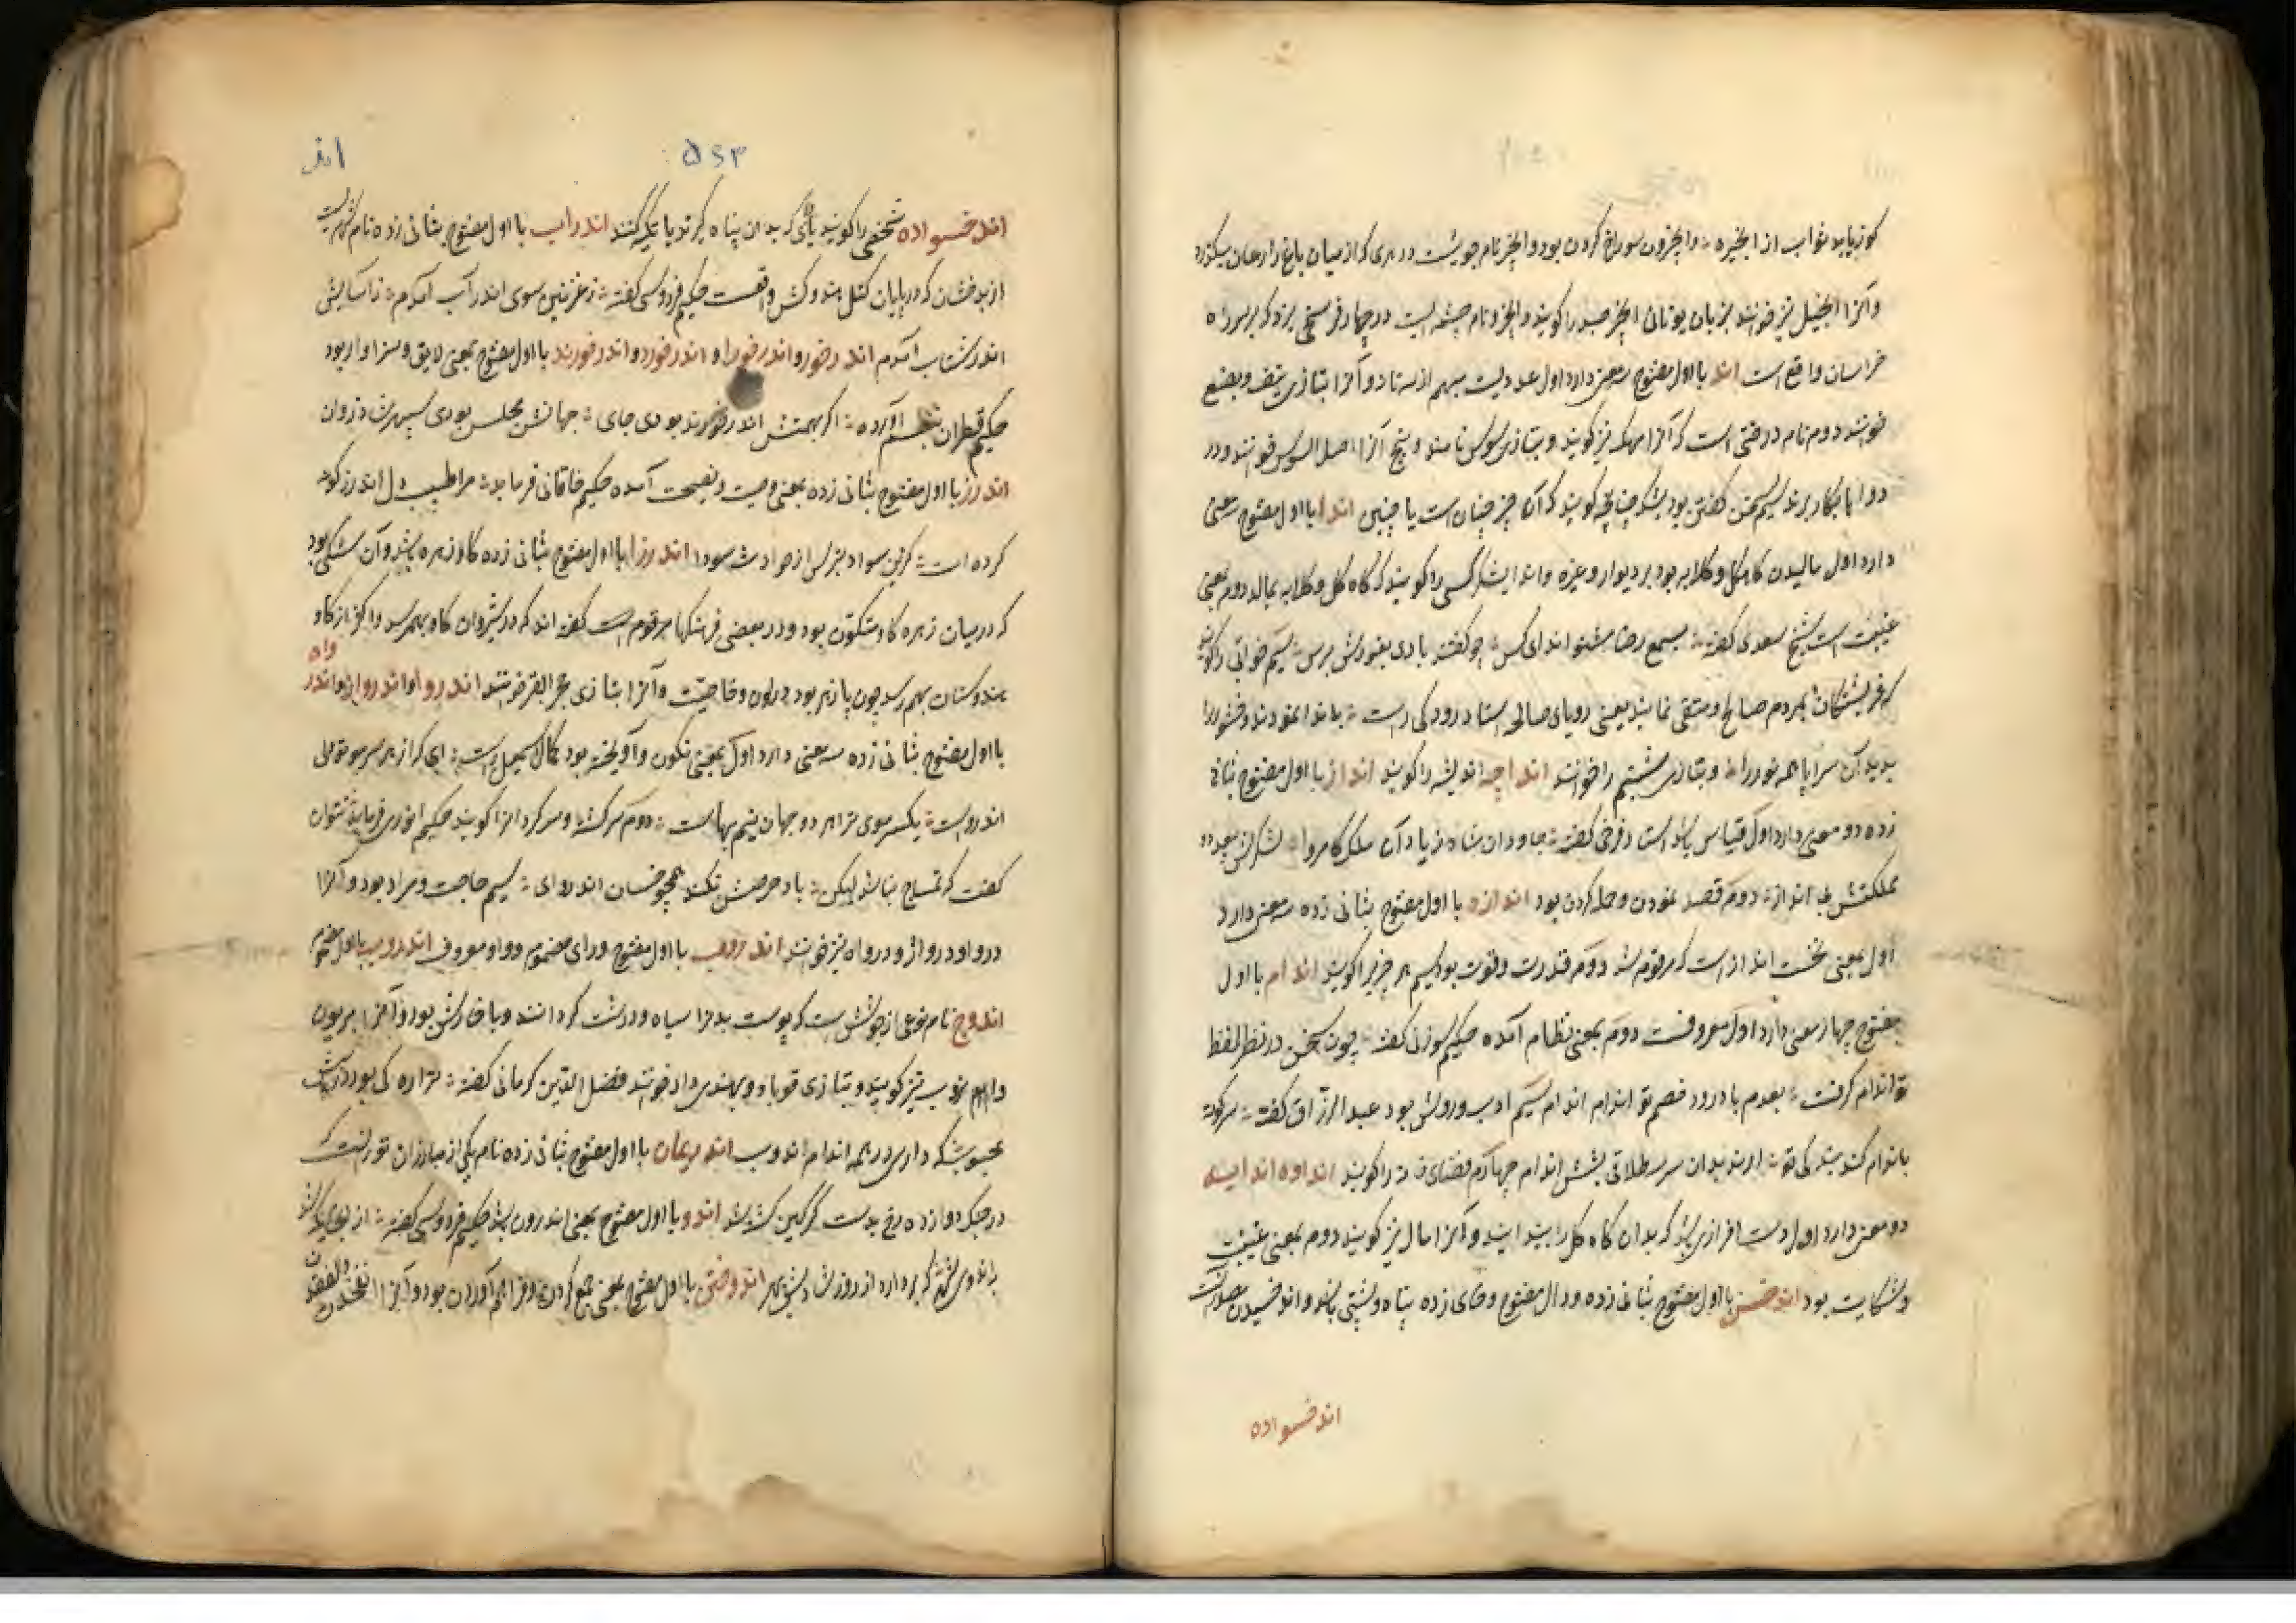 کوز یابد ثواب از انجیره و انجرون سوراخ کردن بود و انجر نام جوییست در هری که از میان باغ زاغان میگذرد
و آنرا انجیل نیز خوانند بزبان یونانی انجر را کویند و انجره نام چشمه ایست در چهار فرسخی یزد که بر سر راه
خراسان واقع است اند با اول مفتوح سه معنی دارد اول عددیست مبهم از سه تا نه و آنرا بتازی نیف و بضع
خوانند دوم نام درختی است که آنرا مهک نیز کویند و بتازی سوس نامند و بیخ آنرا اصل السوس خوانند و در
دواها بکار برند سیم سخن کفتن بود بشک چنانچه کویند که آن چیز چنان است یا چنین اندا با اول مفتوح سه معنی
دارد اول مالیدن کاهکل و کلابه بود بر دیوار و غیره و اندایشکر کسی را کویند که کاه کل و کلابه بمالد دوم بمعنی
غیبت است شیخ سعدی کفته بسمع رضا مشنو اندای کس چو کفته بادی بغورش برس سیم خوابی را کویند
که فرشتکان بمردم صالح و متقی نمایند یعنی رویای صالحه استاد رودکی راست
بدید آن سراپا همه نور را و بتازی خوانند انداچه اندیشه را کویند انداز با اول مفتوح بثانی
زده دو معنی دارد اول قیاس باشد استاد فرخی کفته جاودان شاه زیاد آن ملک کامروا لشکرش بیعدد و
مملکتش بی انداز دوم قصد نمودن و حمله کردن بود اندازه با اول مفتوح بثانی زده سه معنی دارد
اول بمعنی نخست انداز است که مرقوم شد دوم قدرت و قوت بود سیم هر چیز را کویند اندام با اول
مفتوح چهار معنی دارد اول معروفست دوم بمعنی نظام آمده حکیم سوزنی کفته چون سخن در نظر لفظ
تو اندام کرفت بعدم باد رود خصم تو اندام اندام سیم ادب و روش بود عبد الرزاق کفته
باندام کند بندکی تو ندارند بدان سر سه طلاقی بشش اندام چهارم فضای را کویند انداوه اندایه
دو معنی دارد اول دست افزاری باشد که بدان کاه کل را بیندایند و آنرا ماله نیز کویند دوم بمعنی غیبت
و شکایت بود اندخس با اول مفتوح بثانی زده و دال مفتوح و خای زده پناه و پشتی باشد و اندخسیدن مصدر آنست
اندخسواده
۵۶۳
اند
اندخسواده شخصی را کویند یا جائی که بدان پناه کیرند یا تکیه کنند اندراب با اول مفتوح بثانی زده نام شهریست
از بدخشان که در پایان کتل هندوکش واقعست حکیم فردوسی کفته ز غزنین سوی اندراب آمدم ز آسایش
اندر شتاب آمدم اندرخور و اندرخورا و اندرخورد و اندرخورند با اول مفتوح بمعنی لایق و سزاوار بود
حکیم قطران نظم آورده اکر بهمتش اندرخورند بودی جای جهانش مجلس بودی سپهرش دروان
اندرز با اول مفتوح بثانی زده بمعنی وصیت و نصیحت آمده حکیم خاقانی فرماید مرا طبیب دل اندرز کونه
کرده است کزین سواد بترس از حوادث سودا اندرزا با اول مفتوح بثانی زده کاو زهره باشد و آن سنکی بود
که در میان زهره کاو متکون بود و در بعضی فرهنکها مرقوم است کفته اند که در شیردان کاو بهم رسد و اکثر از کاو
هندوستان بهم رسد چون پازهر بود در لون و خاصیت و آنرا بتازی حجر البقر خوانند اندروا و اندروای و اندر
واه
با اول مفتوح بثانی زده سه معنی دارد اول بمعنی نکون و آویخته بود کمال اسمعیل راست ای که از هر سر موی تو دلی
اندرواست یکسر موی ترا هر دو جهان نیم بهاست دوم سرکشته و سرکردانرا کویند حکیم انوری فرماید نتوان
کفت که تمساح نباشد لیکن باد حرصش نکند همچو خسان اندروای سیم حاجت و مراد بود و آنرا
دروا و درواژ و درواه نیز خوانند اندروب با اول مفتوح و رای مضموم و واو معروف اندوب با اول مفتوح
اندوج نام نوعی از جوشش است که پوست بدنرا سیاه و درشت کرداند و با خارش بود و آنرا بریون
و ادرفن نیز کویند و بتازی قوبا و بهندی داد خوانند فضل الدین کرمانی کفته
که داری در همه اندام اندوب اندریمان با اول مفتوح بثانی زده نام یکی از مبارزان تورانست که
در جنک دوازده رخ بدست کرکین کشته شد اندو با اول مفتوح بمعنی اندرون باشد حکیم فردوسی کفته
اندوختن با اول مفتوح بمعنی جمع کردن و فراهم آوردن بود و آنرا